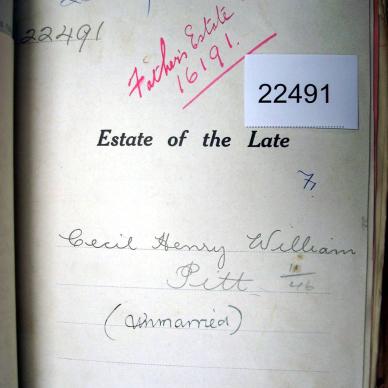 22491
Father's Estate
16191.
22491
Estate of the Late
7,
Cecil Henry William
Pitt 11/46
(Unmarried)